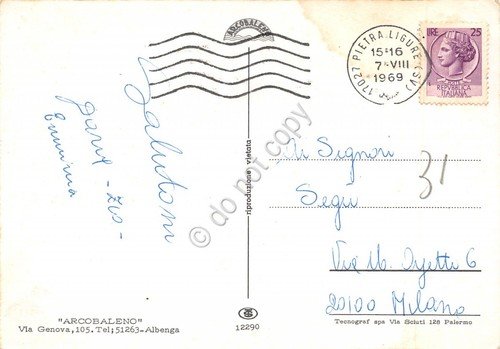 ARCOBALENO
17027 PIETRA LIGURE (SV)
15-16
7-VIII
1969
LIRE 25
REPVBBLICA
ITALIANA
Salutoni
Zio -
Erminia
do not copy
riproduzione vietata
Ai Signori
Segù
Via U. Ojetti 6
20100 Milano
31
"ARCOBALENO"
Via Genova, 105. Tel; 51263-Albenga
12290
Tecnograf spa Via Sciuti 128 Palermo